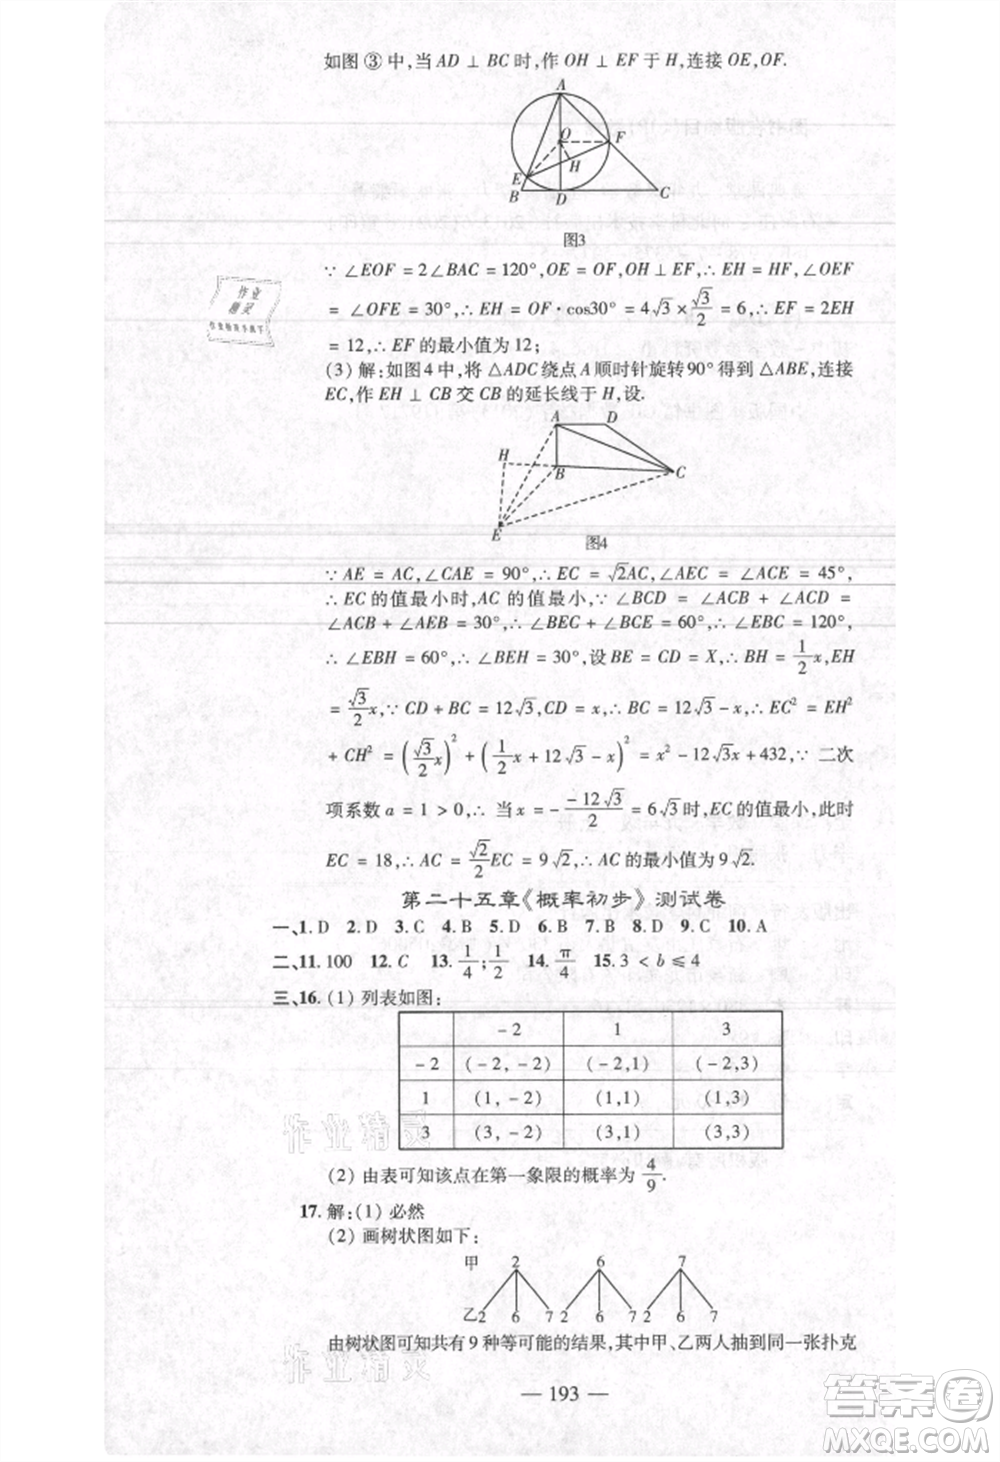 如图③中,当 AD ⊥ BC 时,作 OH ⊥ EF 于 H,连接 OE,OF.
A
O
F
H
E
B
D
C
图3
∵ ∠EOF = 2∠BAC = 120°,OE = OF,OH ⊥ EF,∴ EH = HF,∠OEF
= ∠OFE = 30°,∴ EH = OF·cos30° = 4√3 × √3/2 = 6,∴ EF = 2EH
= 12,∴ EF 的最小值为 12;
(3) 解:如图4中,将 △ADC 绕点 A 顺时针旋转90°得到 △ABE,连接
EC,作 EH ⊥ CB 交 CB 的延长线于 H,设.
A
D
H
B
C
E
图4
∵ AE = AC,∠CAE = 90°,∴ EC = √2AC,∠AEC = ∠ACE = 45°,
∴ EC 的值最小时,AC 的值最小,∵ ∠BCD = ∠ACB + ∠ACD =
∠ACB + ∠AEB = 30°,∴ ∠BEC + ∠BCE = 60°,∴ ∠EBC = 120°,
∴ ∠EBH = 60°,∠BEH = 30°,设 BE = CD = X,∴ BH = 1/2 x,EH
= √3/2 x,∵ CD + BC = 12√3,CD = x,∴ BC = 12√3 − x,∴ EC² = EH²
+ CH² = (√3/2 x)² + (1/2 x + 12√3 − x)² = x² − 12√3 x + 432,∵ 二次
项系数 a = 1 > 0,∴ 当 x = − (−12√3)/2 = 6√3 时,EC 的值最小,此时
EC = 18,∴ AC = √2/2 EC = 9√2,∴ AC 的最小值为 9√2.
第二十五章《概率初步》测试卷
一、1. D 2. D 3. C 4. B 5. D 6. B 7. B 8. D 9. C 10. A
二、11. 100 12. C 13. 1/4;1/2 14. π/4 15. 3 < b ≤ 4
三、16. (1) 列表如图:
−2 1 3
−2 (−2,−2) (−2,1) (−2,3)
1 (1,−2) (1,1) (1,3)
3 (3,−2) (3,1) (3,3)
(2) 由表可知该点在第一象限的概率为 4/9.
17. 解:(1) 必然
(2) 画树状图如下:
甲 2 6 7
乙 2 6 7 2 6 7 2 6 7
由树状图可知共有 9 种等可能的结果,其中甲、乙两人抽到同一张扑克
— 193 —
作业精灵
作业精灵
答案卷
MXQE.COM